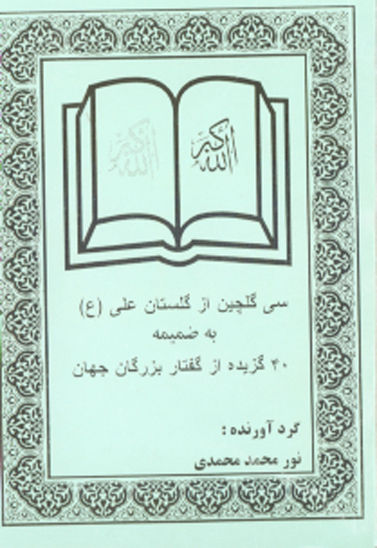 الله اکبر
الله اکبر
سی گلچین از گلستان علی (ع)
به ضمیمه
۴۰ گزیده از گفتار بزرگان جهان
گرد آورنده :
نور محمد محمدی